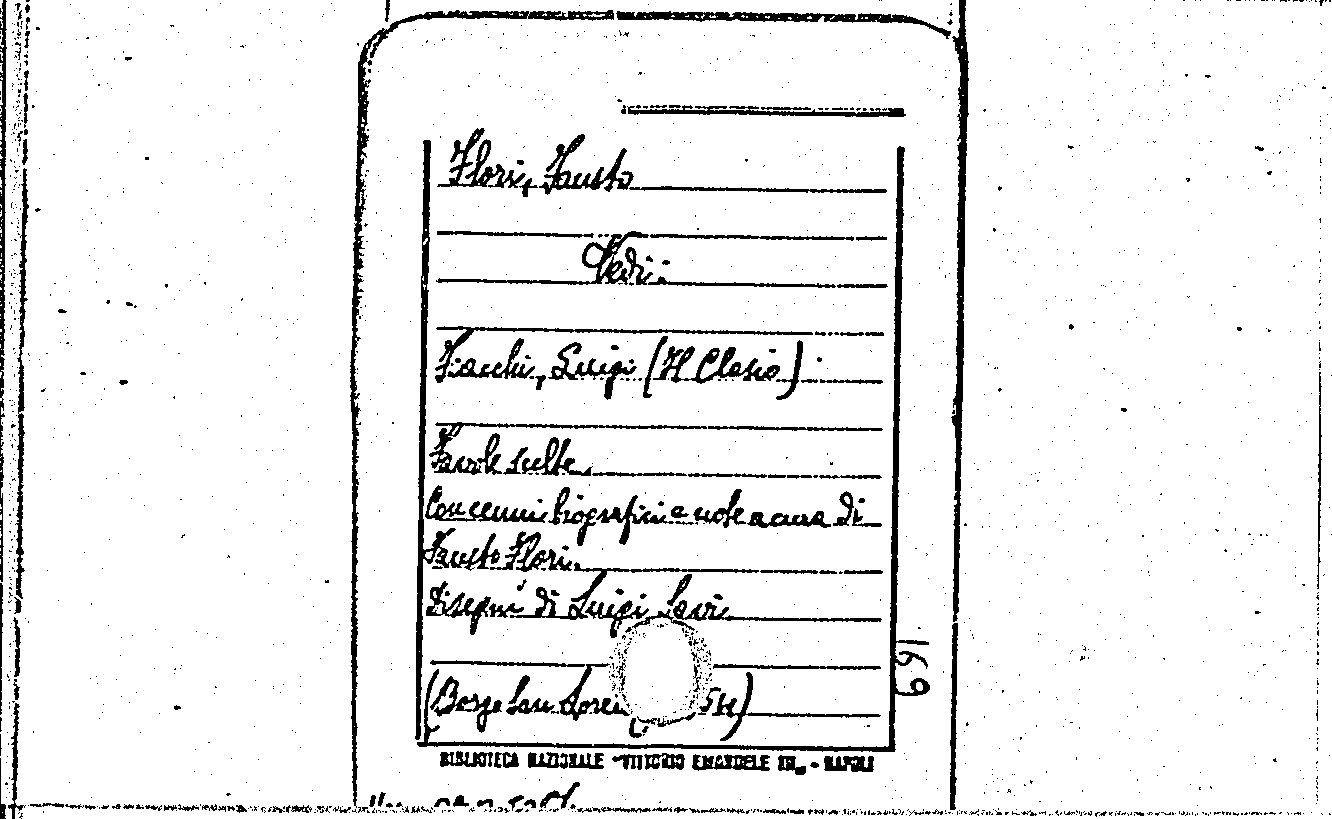 Flori, Fausto
Vedi:
Fiacchi, Luigi (Il Clasio)
Favole scelte.
Con cenni biografici e note a cura di
Fausto Flori.
Disegni di Luigi Savi.
(Borgo San
BIBLIOTECA NAZIONALE "VITTORIO EMANUELE III" - NAPOLI
169